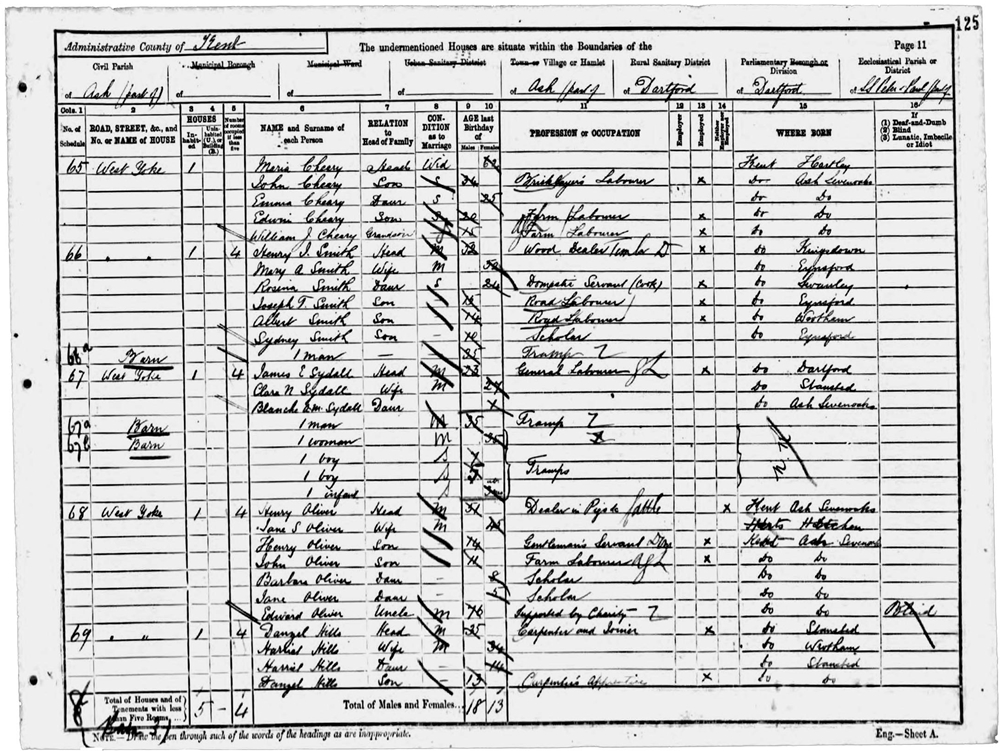 125
Administrative County of Kent The undermentioned Houses are situate within the Boundaries of the Page 11
Civil Parish Municipal Borough Municipal Ward Urban Sanitary District Town or Village or Hamlet Rural Sanitary District Parliamentary Borough or Division Ecclesiastical Parish or District
of Ash (part of) of of of of Ash (part of of Dartford of Dartford of
Cols. 1 2 3 4 5 6 7 8 9 10 11 12 13 14 15 16
No. of Schedule ROAD, STREET, &c., and No. or NAME of HOUSE HOUSES Inhabited Uninhabited (U.) or Building (B.) Number of rooms occupied if less than five NAME and Surname of each Person RELATION to Head of Family CONDITION as to Marriage AGE last Birthday of Males Females PROFESSION or OCCUPATION Employer Employed Neither employer nor employed WHERE BORN (1) Deaf-and-Dumb (2) Blind (3) Lunatic, Imbecile or Idiot
65 West Yoke 1 Maria Cheary Head Wid 62 Kent Hartley
John Cheary Son S 34 Bricklayer's Labourer x Do Ash Sevenoaks
Emma Cheary Daur S 25 Do Do
Edwin Cheary Son S 20 Farm Labourer x Do Do
William J. Cheary Grandson 15 Farm Labourer x Do Do
66 " " 1 4 Henry J. Smith Head M 52 Wood Dealer x Do Kingsdown
Mary A Smith Wife M 52 Do Eynsford
Rosina Smith Daur S 24 Domestic Servant (Cook) x Do Swanley
Joseph T. Smith Son 15 Road Labourer x Do Eynsford
Albert Smith Son 14 Road Labourer x Do Wrotham
Sydney Smith Son – 10 Scholar Do Eynsford
66a Barn 1 man – – 35 Tramp
67 West Yoke 1 4 James E Sydall Head M 23 General Labourer x Do Dartford
Clara N Sydall Wife M 27 Do Stansted
Blanche E.M. Sydall Daur Do Ash Sevenoaks
67a Barn 1 man M 35 Tramp
67b Barn 1 woman M 35 x
1 boy
1 boy Tramps
1 infant
N K
68 West Yoke 1 4 Henry Oliver Head M 51 Dealer in Pigs &c Cattle x Kent Ash Sevenoaks
Jane S Oliver Wife M 45 Herts
Henry Oliver Son 14 Gentleman's Servant x Kent Ash Sevenoaks
John Oliver Son 11 Farm Labourer x Do Do
Barbara Oliver Daur 8 Scholar Do Do
Jane Oliver Daur 5 Scholar Do Do
Edward Oliver Uncle M 76 Supported by Charity Do Do Blind
69 " " 1 4 Danzel Hills Head M 35 Carpenter and Joiner x Do Stansted
Harriet Hills Wife M 34 Do Wrotham
Harriet Hills Daur 14 Do Stansted
Danzel Hills Son – 13 Carpenter's Apprentice x Do Do
Total of Houses and of Tenements with less than Five Rooms 5 – 4 Total of Males and Females... 18 13
NOTE.—Draw the pen through such of the words of the headings as are inappropriate. Eng.—Sheet A.